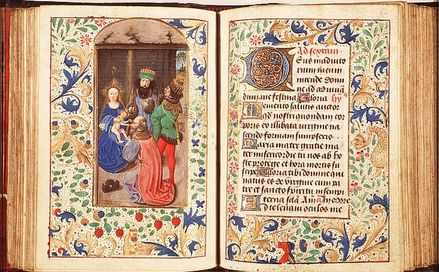 Ad sextam
Deus in adiuto
rium meum
intende Domi
ne ad adiuua
dum me festina Gloria hy
Memento salutis auctor
quod nostri quondam cor
poris ex illibata virgine na
scendo formam sumpseris
Maria mater gratie ma
ter misericordie tu nos ab ho
ste protege et hora mortis su
scipe Gloria tibi domine qui
natus es de virgine cum
et sancto spiritu in sempi
terna secula
Ad te leuaui oculos me